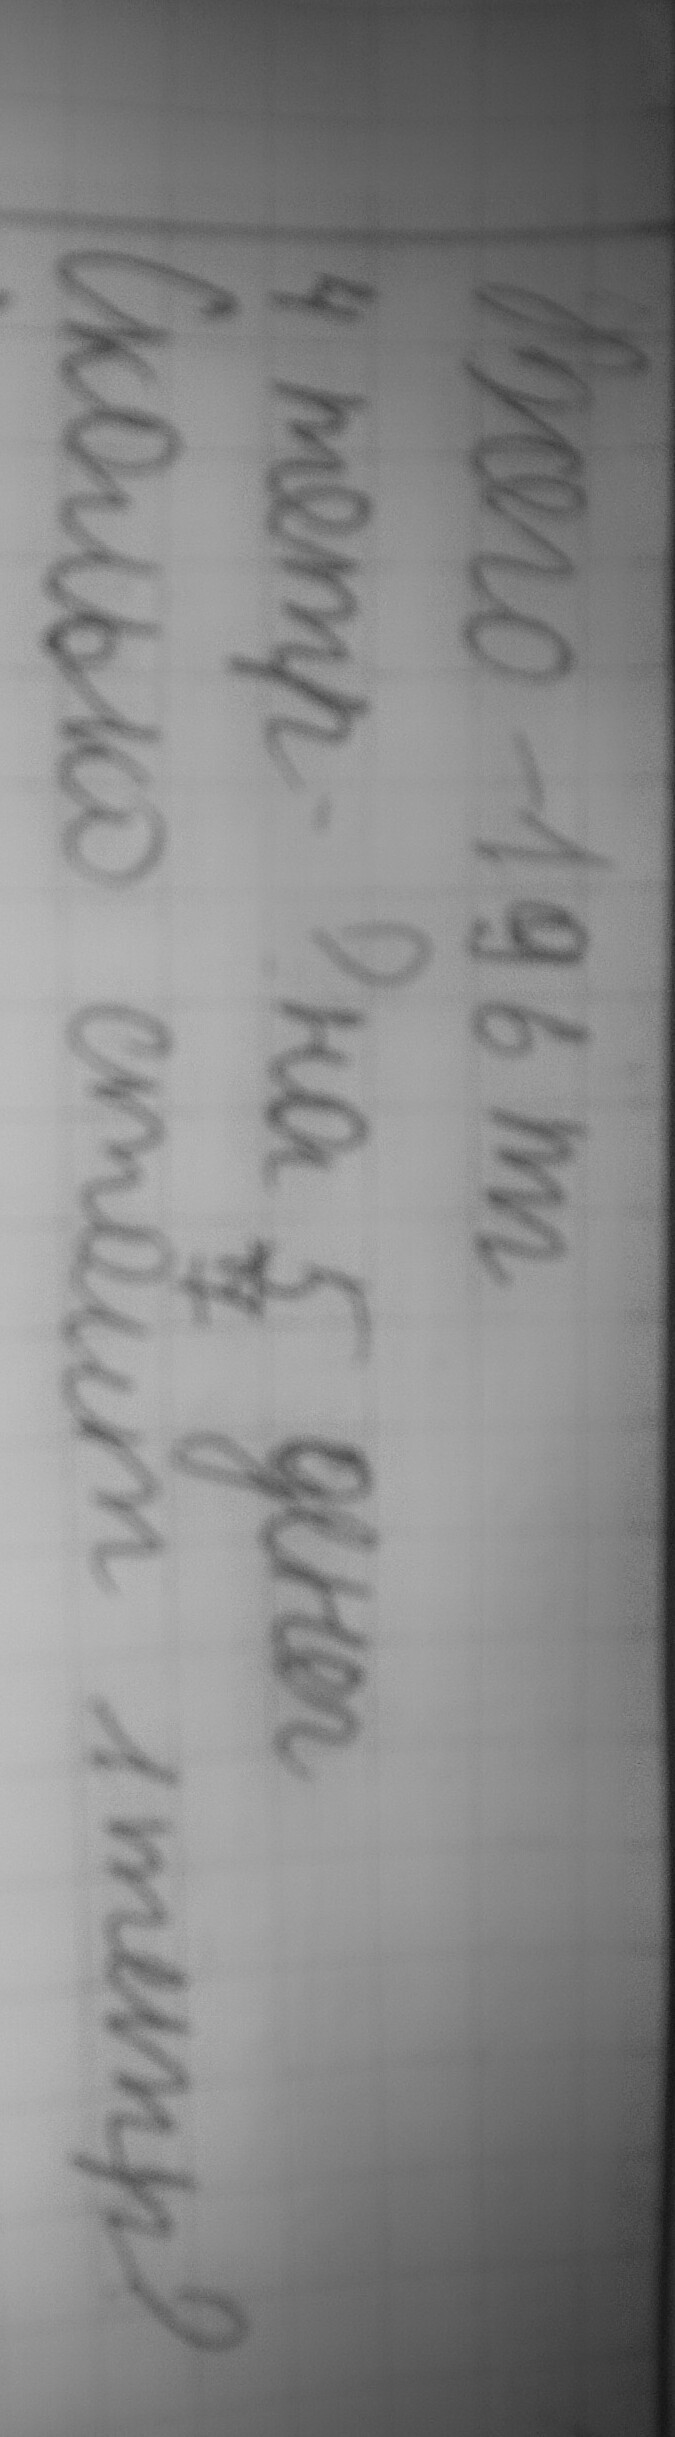 Всего - 196 т
4 тетр - ? на 5 днен
Сколько стоит 1 тетр?